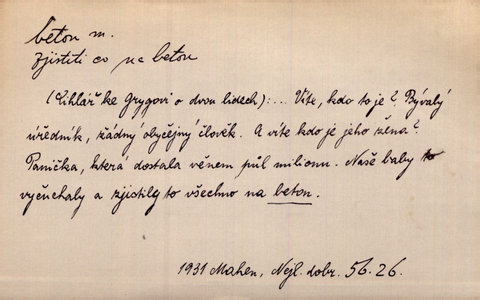 beton m.
zjistiti co na beton
(Cihlář ke Grygovi o dvou lidech):... Víte, kdo to je? Bývalý
úředník, žádný obyčejný člověk. A víte kdo je jeho žena?
Panička, která dostala věnem půl milionu. Naše baby to
vyčuchaly a zjistily to všechno na beton.
1931 Mahen, Nejl. dobr. 56.26.